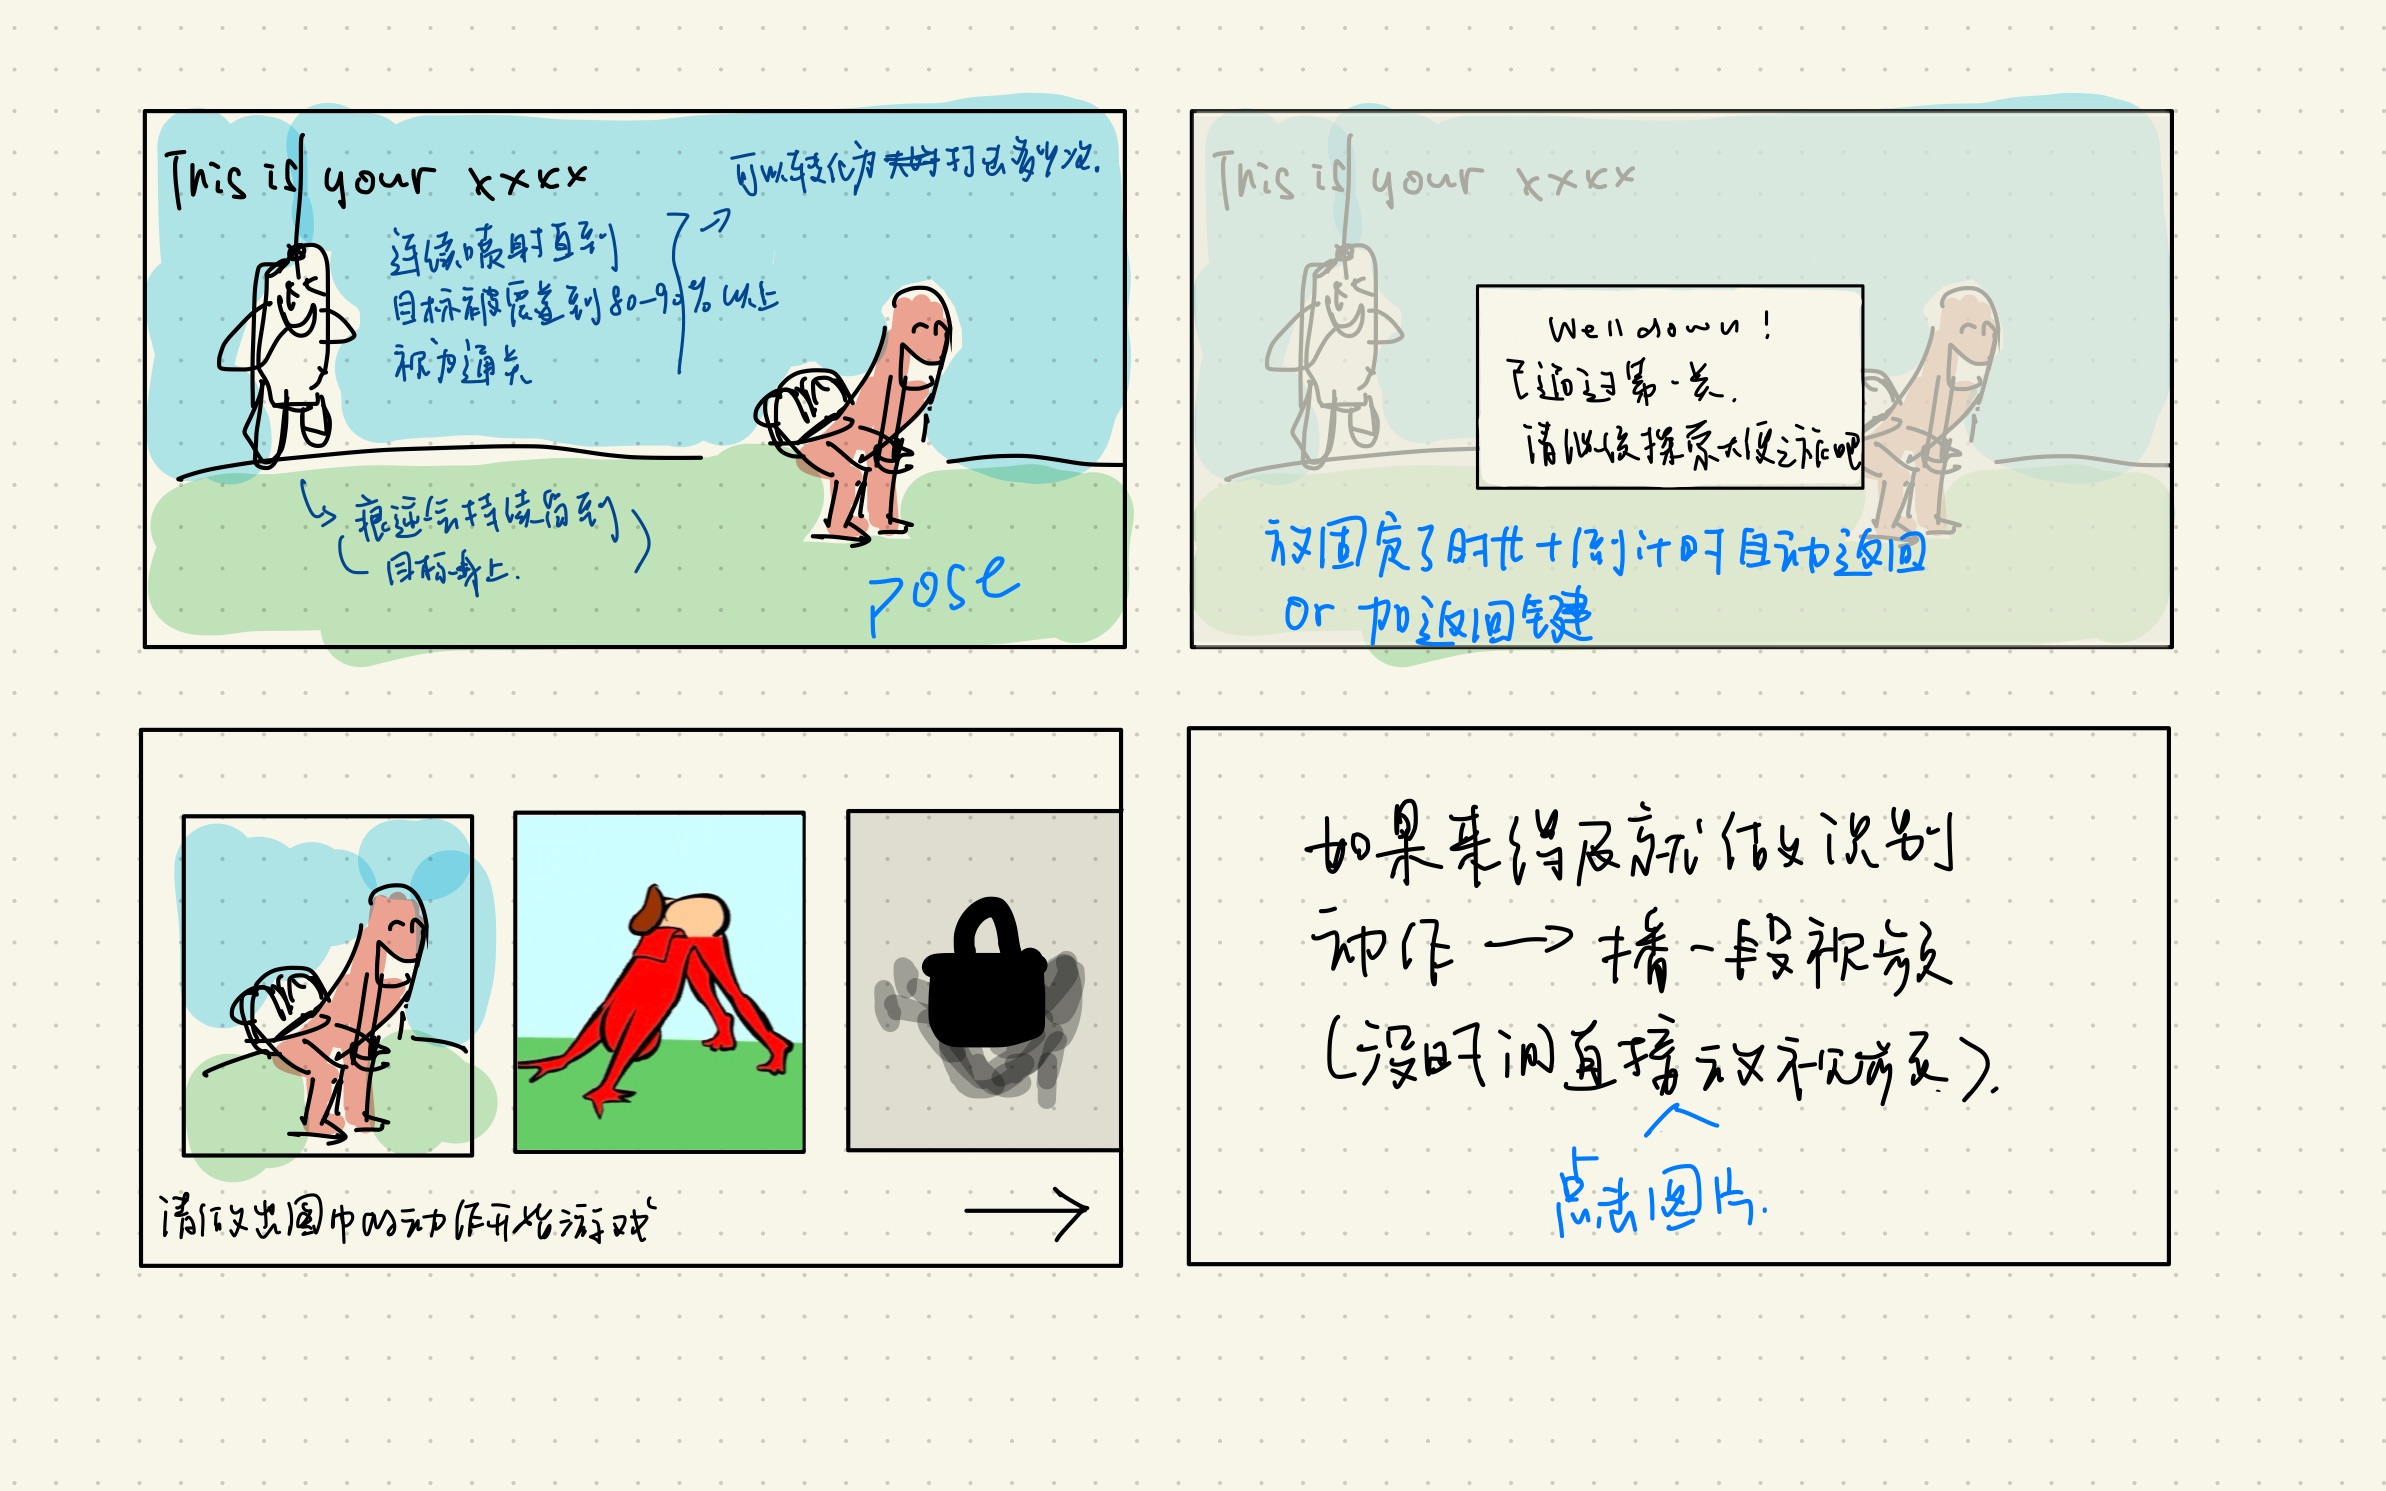 This is your xxxx
可以转化为打击多少次.
连续喷射直到
目标被覆盖到80-90% 以上
视为通关
痕迹会持续留到
目标身上.
pose
This is your xxxx
Well down!
已通过第一关.
请继续探索大便之旅吧
放固定了时长+倒计时自动返回
or 加返回键
请做出图中的动作开始游戏
如果来得及就做识别
动作 → 播一段视频
(没时间直接放视频页).
点击图片.